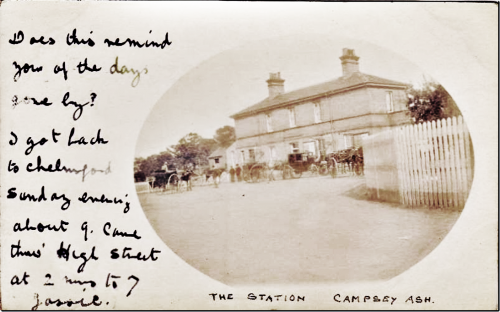 Does this remind
you of the days
gone by?
I got back
to Chelmsford
Sunday evening
about 9. Came
thro' High Street
at 2 mins to 7
THE STATION CAMPSEY ASH.